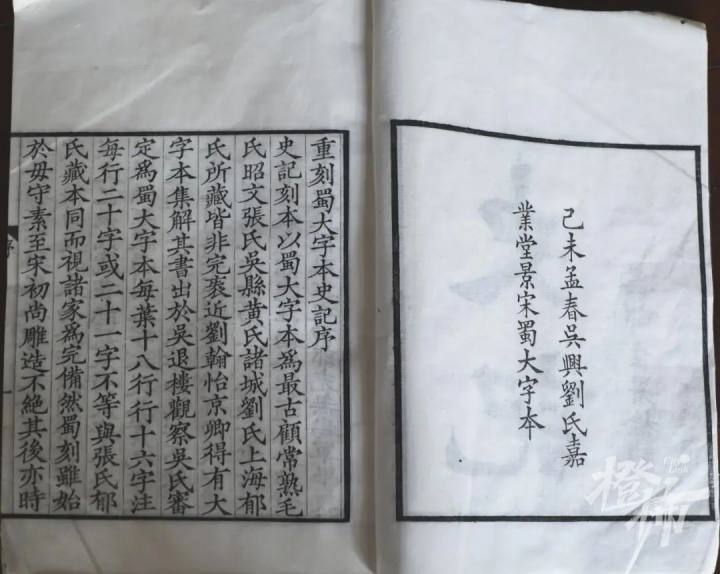 己未孟春吳興劉氏嘉
業堂景宋蜀大字本
重刻蜀大字本史記序
史記刻本以蜀大字本為最古顧常熟毛
氏昭文張氏吳縣黃氏諸城劉氏上海郁
氏所藏皆非完袠近劉翰怡京卿得有大
字本集解其書出於吳退樓觀察吳氏審
定為蜀大字本每葉十八行行十六字注
每行二十字或二十一字不等與張氏郁
氏藏本同而視諸家為完備然蜀刻雖始
於毋守素至宋初尚雕造不絕其後亦時
序
橙柿